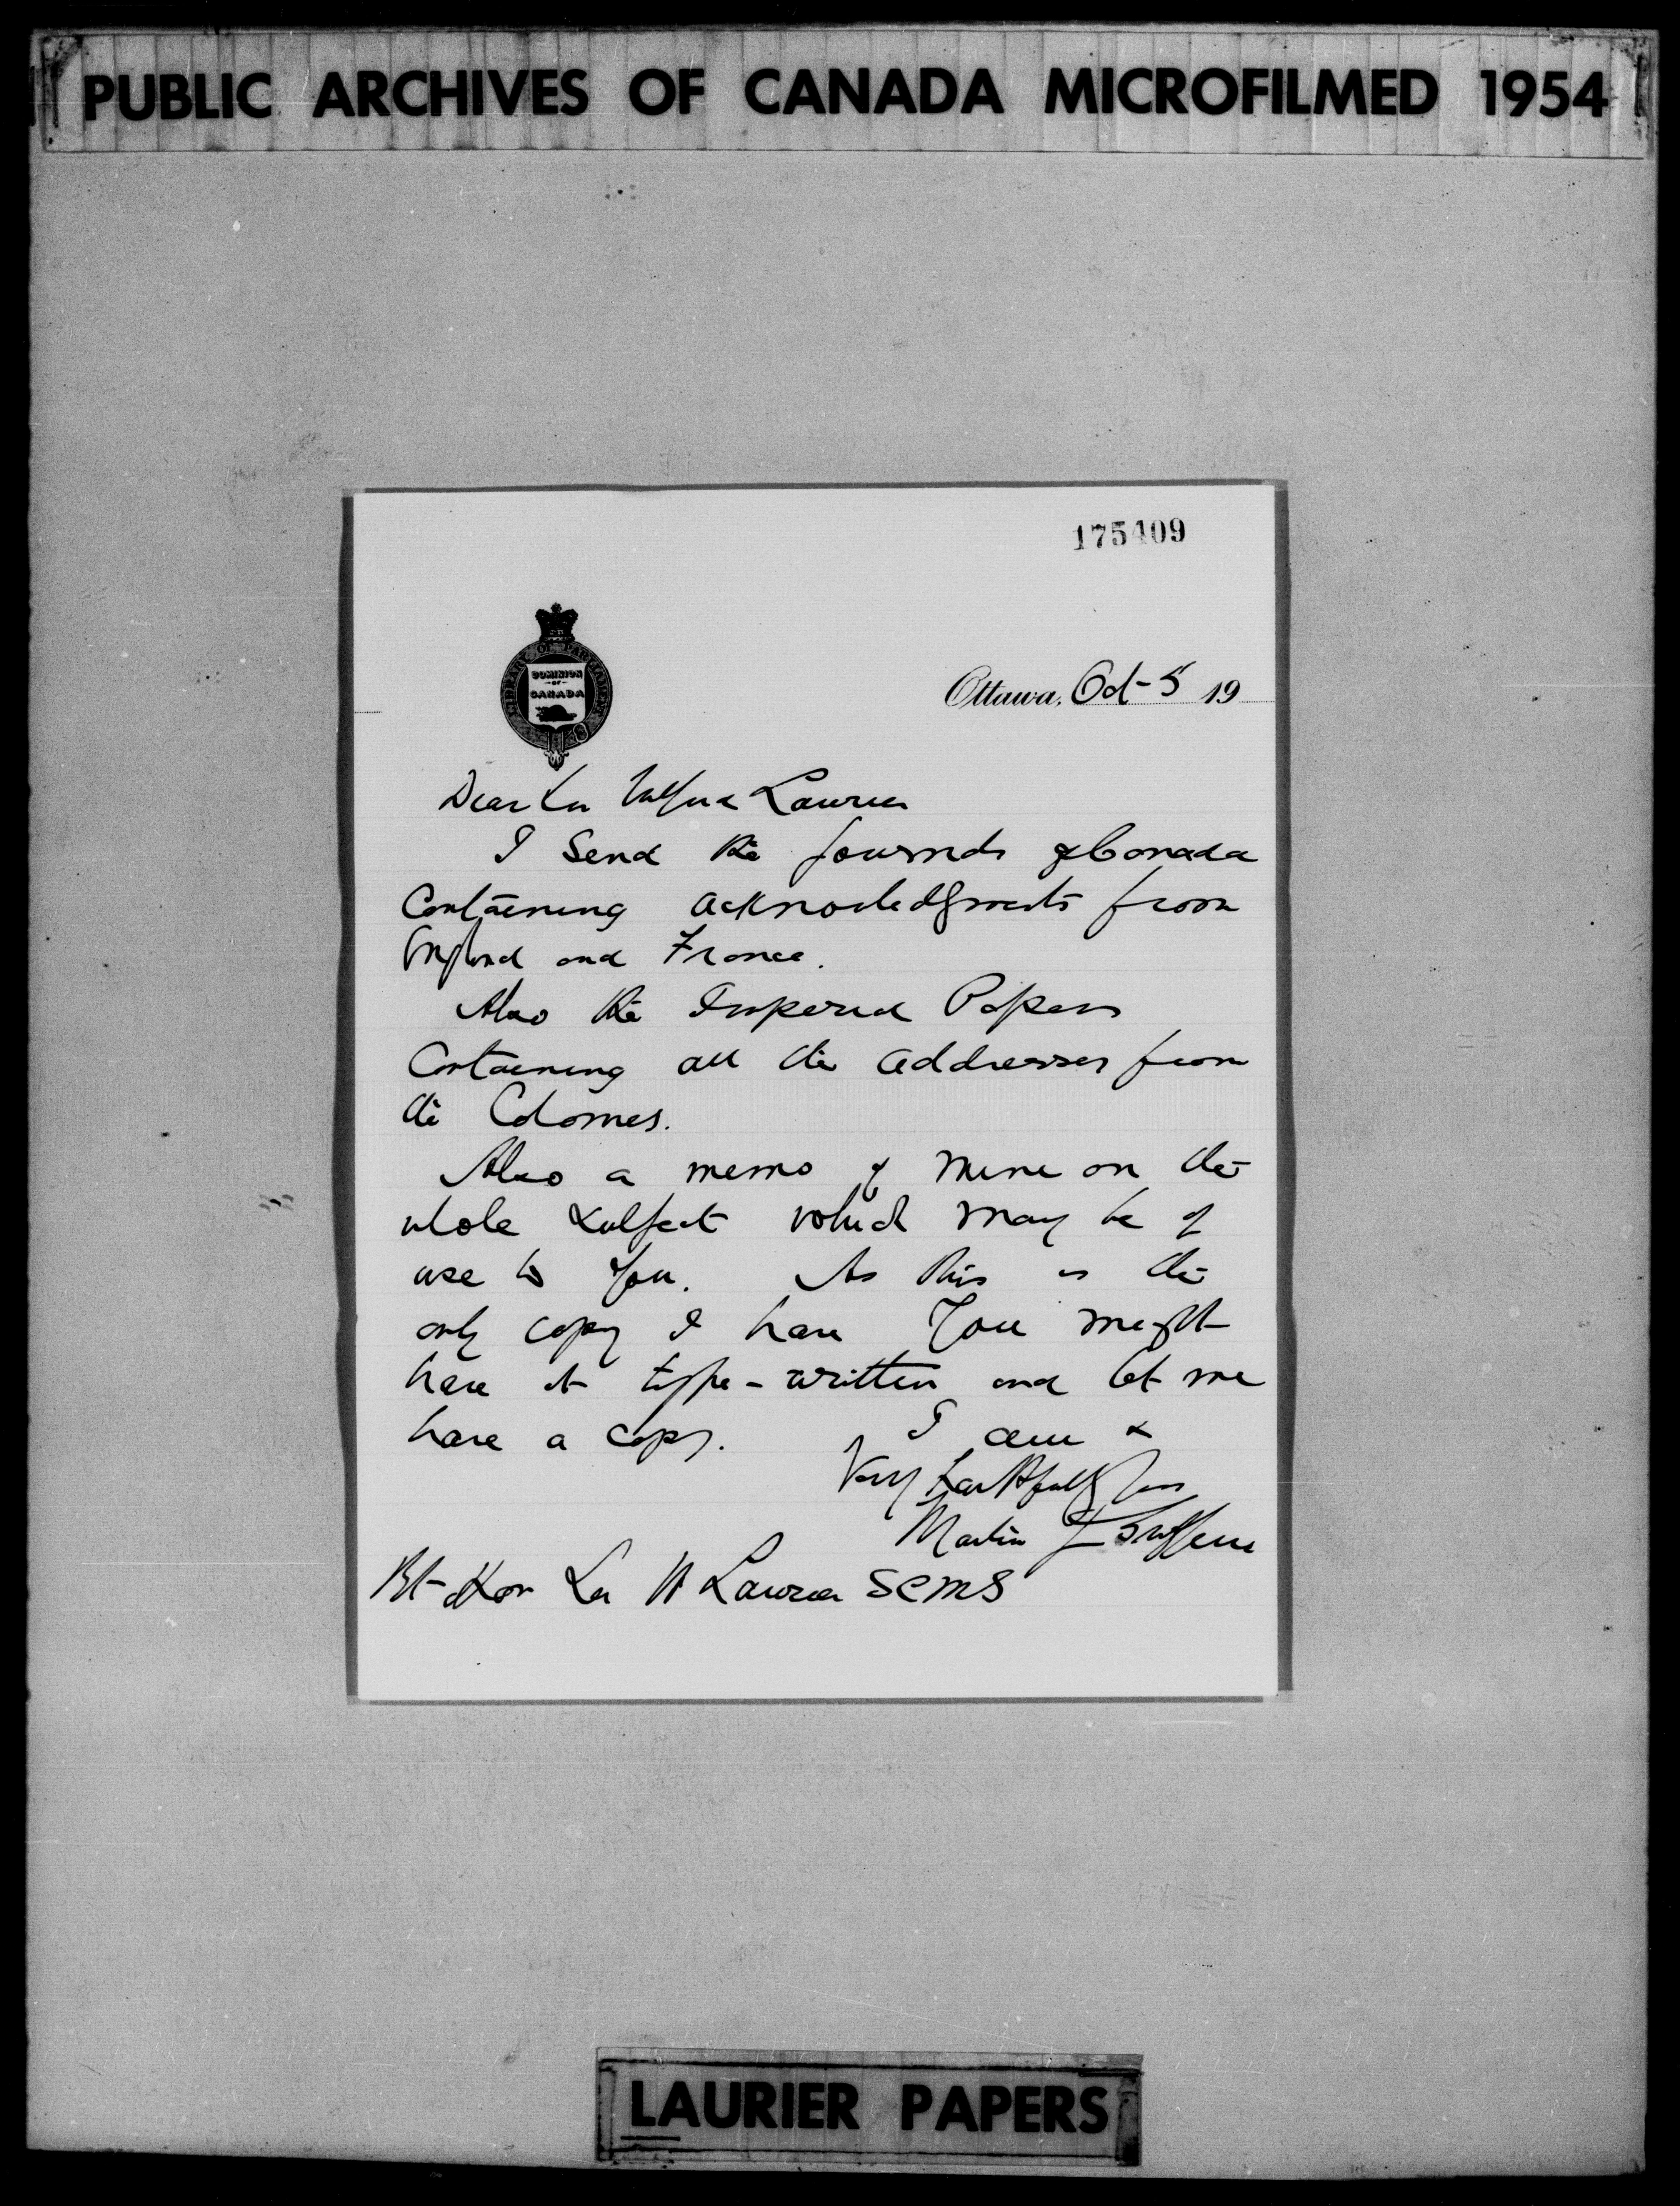 PUBLIC ARCHIVES OF CANADA MICROFILMED 1954
175409
LIBRARY OF PARLIAMENT
DOMINION
OF
CANADA
Ottawa, Oct 5 19
Dear Sir Wilfrid Laurier
I send the Journals of Canada
Containing acknowledgments from
England and France.
Also the Imperial Papers
Containing all the addresses from
the Colonies.
Also a memo of mine on the
whole subject which may be of
use to you. As this is the
only copy I have you might
have it type-written and let me
have a copy. I am
Very faithfully yours
Martin J Griffin
Rt Hon Sir W Laurier GCMG
LAURIER PAPERS